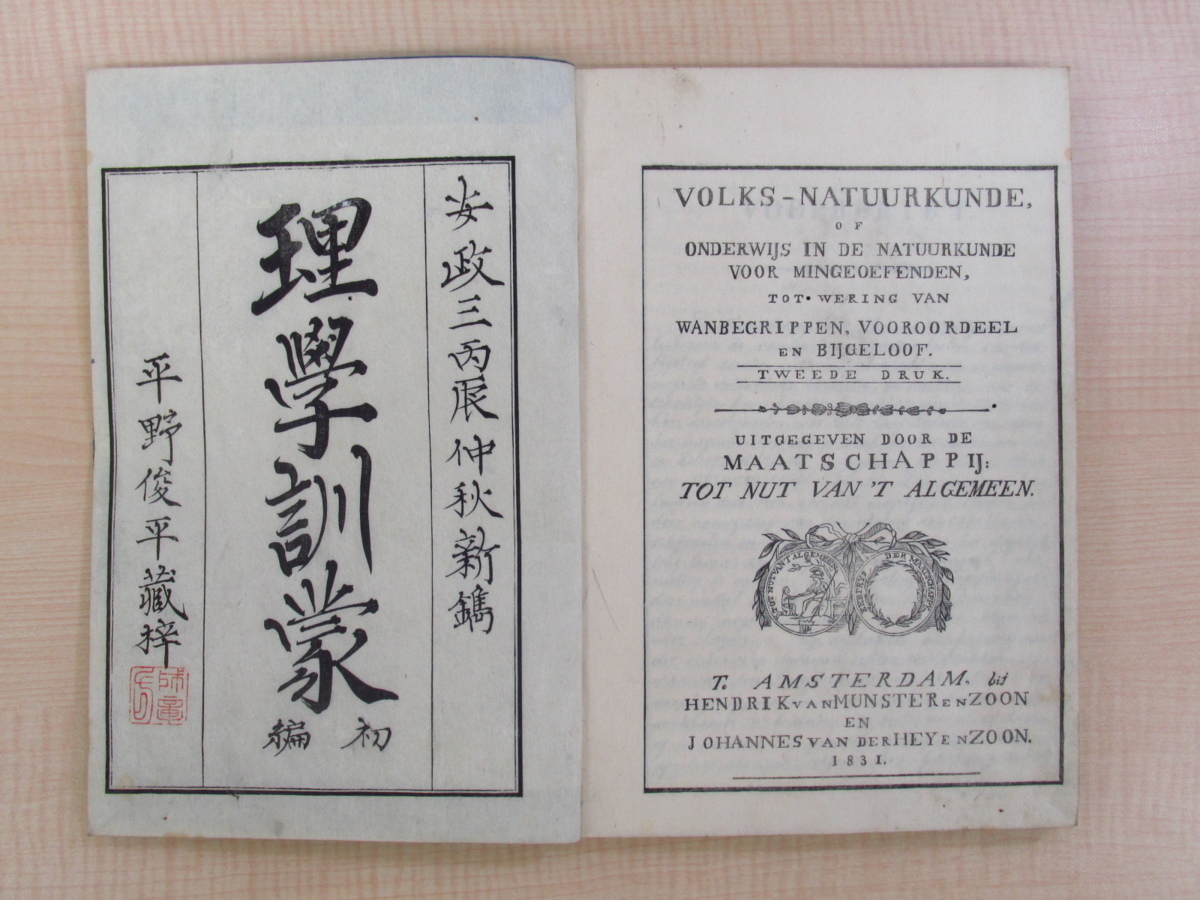 安政三丙辰仲秋新鐫
理學訓蒙
初編
平野俊平藏梓
VOLKS-NATUURKUNDE,
OF
ONDERWIJS IN DE NATUURKUNDE
VOOR MINGEOEFENDEN,
TOT WERING VAN
WANBEGRIPPEN, VOOROORDEEL
EN BIJGELOOF.
TWEEDE DRUK.
UITGEGEVEN DOOR DE
MAATSCHAPPIJ:
TOT NUT VAN'T ALGEMEEN.
TOT NUT VAN'T ALGEMEEN
T. AMSTERDAM, bij
HENDRIK VAN MUNSTER EN ZOON
EN
JOHANNES VAN DER HEY EN ZOON.
1831.